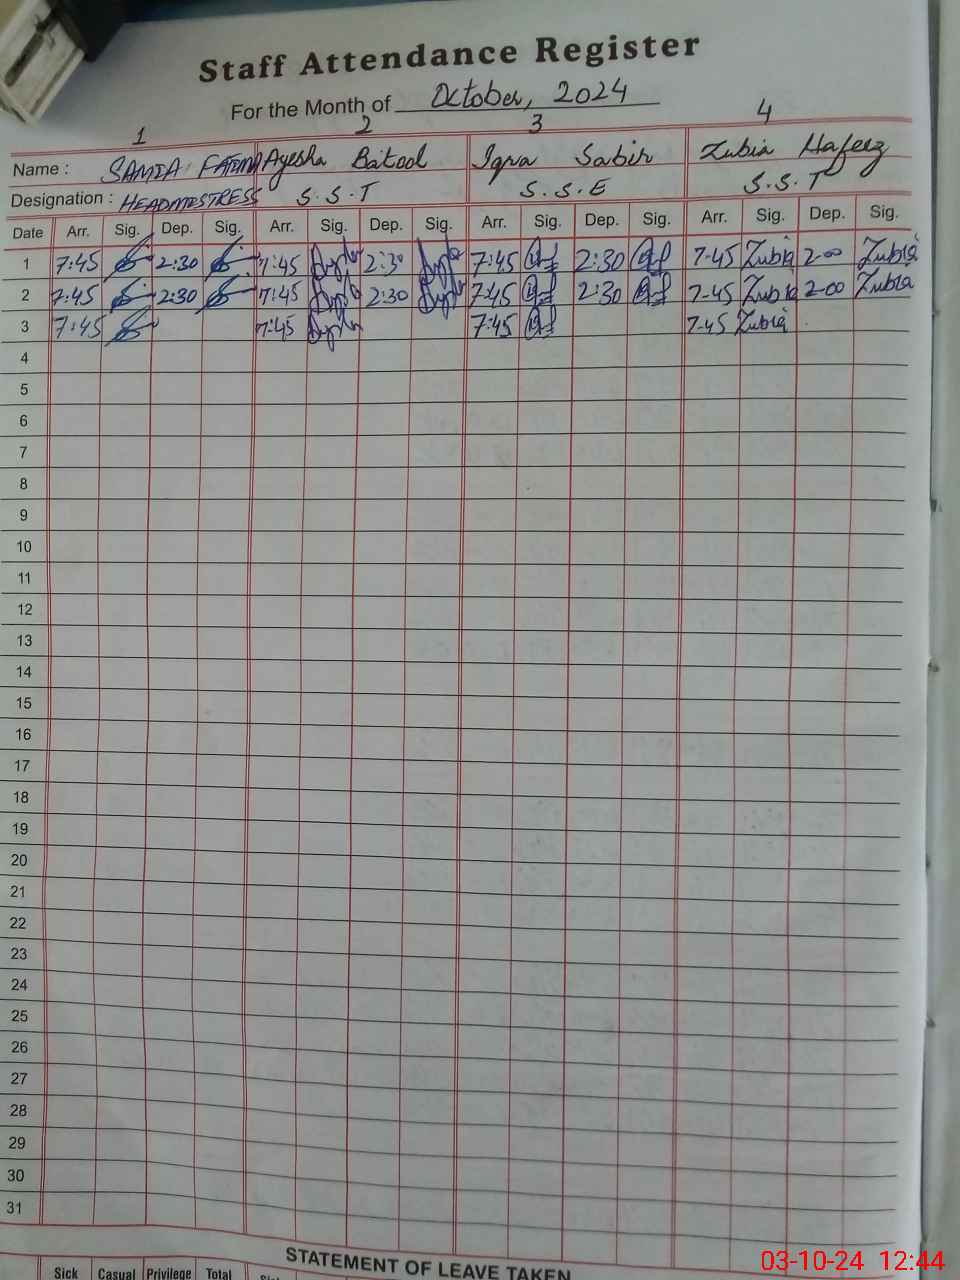 Staff Attendance Register
For the Month of October, 2024
1 2 3 4
Name : SAMIA FATIMA Ayesha Batool Iqra Sabir Zubia Hafeez
Designation : HEADMESTRESS S.S.T S.S.E S.S.T
Date Arr. Sig. Dep. Sig. Arr. Sig. Dep. Sig. Arr. Sig. Dep. Sig. Arr. Sig. Dep. Sig.
1 7:45 2:30 7:45 2:30 7:45 2:30 7-45 Zubia 2-00 Zubia
2 7:45 2:30 7:45 2:30 7:45 2:30 7-45 Zubia 2-00 Zubia
3 7:45 7:45 7:45 7-45 Zubia
4
5
6
7
8
9
10
11
12
13
14
15
16
17
18
19
20
21
22
23
24
25
26
27
28
29
30
31
STATEMENT OF LEAVE TAKEN
Sick Casual Privilege Total
03-10-24 12:44